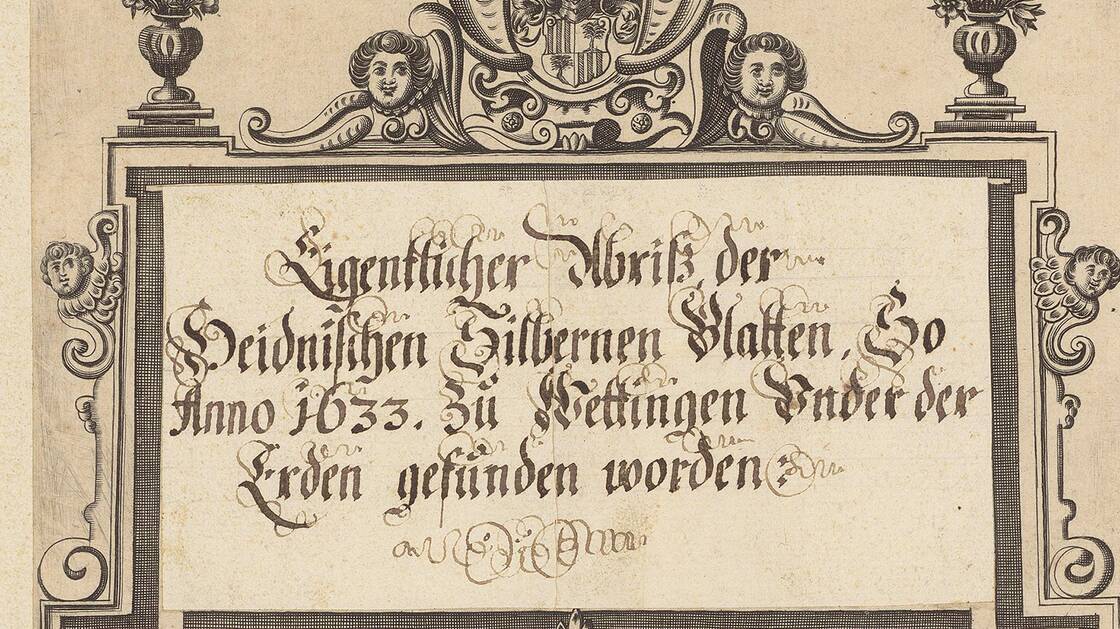 Eigentlicher Abriß, der
Heidnischen Silbernen Blatten, So
Anno 1633. Zu Wettingen Vnder der
Erden gefunden worden